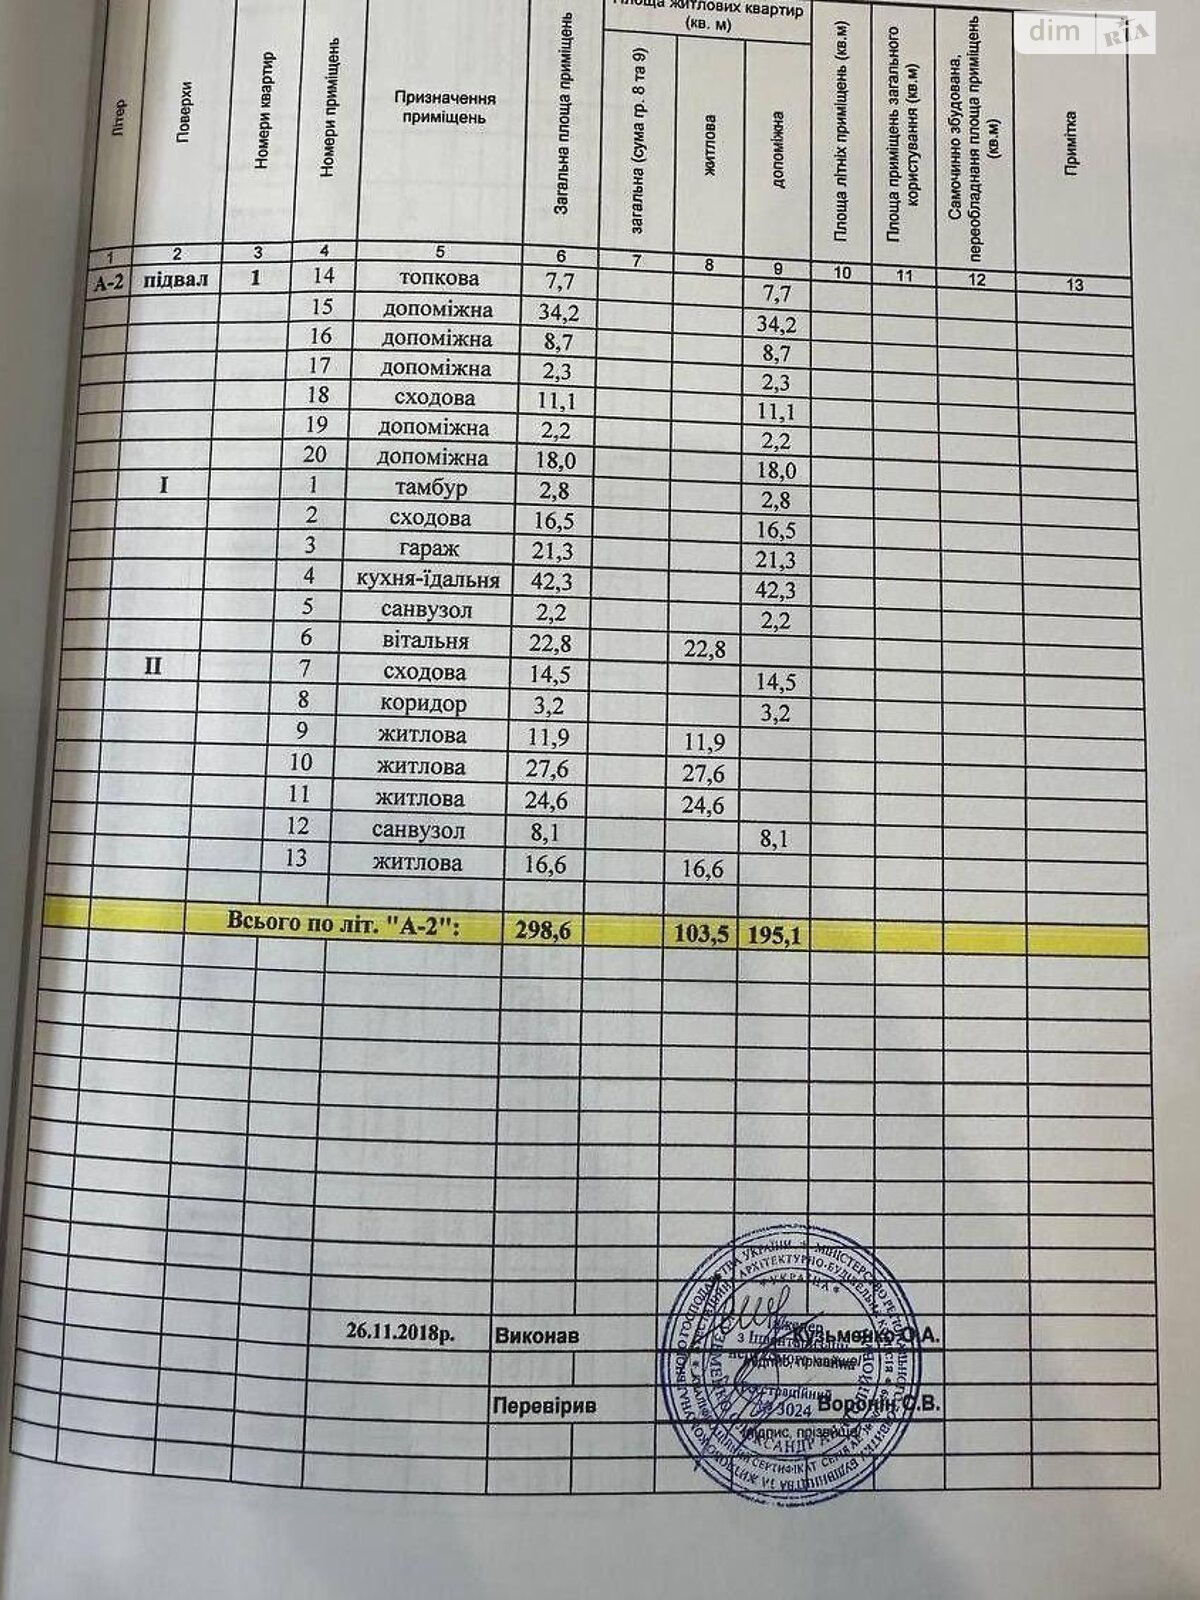 dim RIA
Площа житлових квартир
(кв. м)
Літер
Поверхи
Номери квартир
Номери приміщень
Призначення
приміщень
Загальна площа приміщень
загальна (сума гр. 8 та 9)
житлова
допоміжна
Площа літніх приміщень (кв.м)
Площа приміщень загального
користування (кв.м)
Самочинно збудована,
переобладнана площа приміщень
(кв.м)
Примітка
1 2 3 4 5 6 7 8 9 10 11 12 13
А-2 підвал 1 14 топкова 7,7 7,7
15 допоміжна 34,2 34,2
16 допоміжна 8,7 8,7
17 допоміжна 2,3 2,3
18 сходова 11,1 11,1
19 допоміжна 2,2 2,2
20 допоміжна 18,0 18,0
I 1 тамбур 2,8 2,8
2 сходова 16,5 16,5
3 гараж 21,3 21,3
4 кухня-їдальня 42,3 42,3
5 санвузол 2,2 2,2
6 вітальня 22,8 22,8
II 7 сходова 14,5 14,5
8 коридор 3,2 3,2
9 житлова 11,9 11,9
10 житлова 27,6 27,6
11 житлова 24,6 24,6
12 санвузол 8,1 8,1
13 житлова 16,6 16,6
Всього по літ. "А-2": 298,6 103,5 195,1
26.11.2018р. Виконав Кузьменко О.А.
Перевірив Воронін С.В.
УКРАЇНА
3024